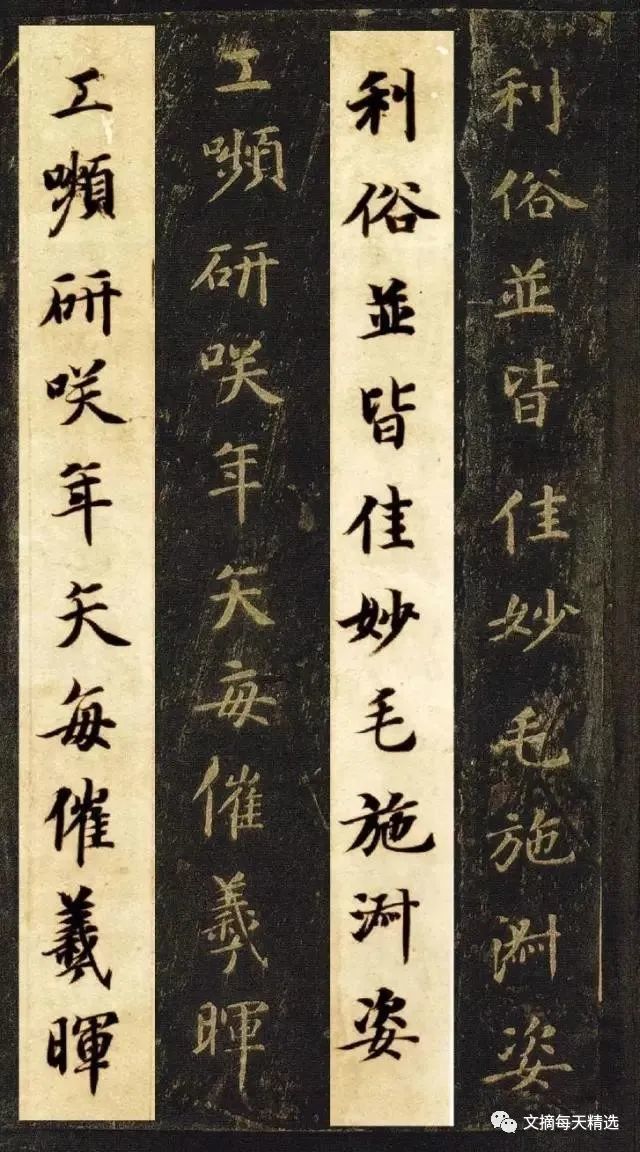 利俗並皆佳妙毛施淑姿
利俗並皆佳妙毛施淑姿
工嚬研咲年矢每催羲暉
工嚬研咲年矢每催羲暉
文摘每天精选